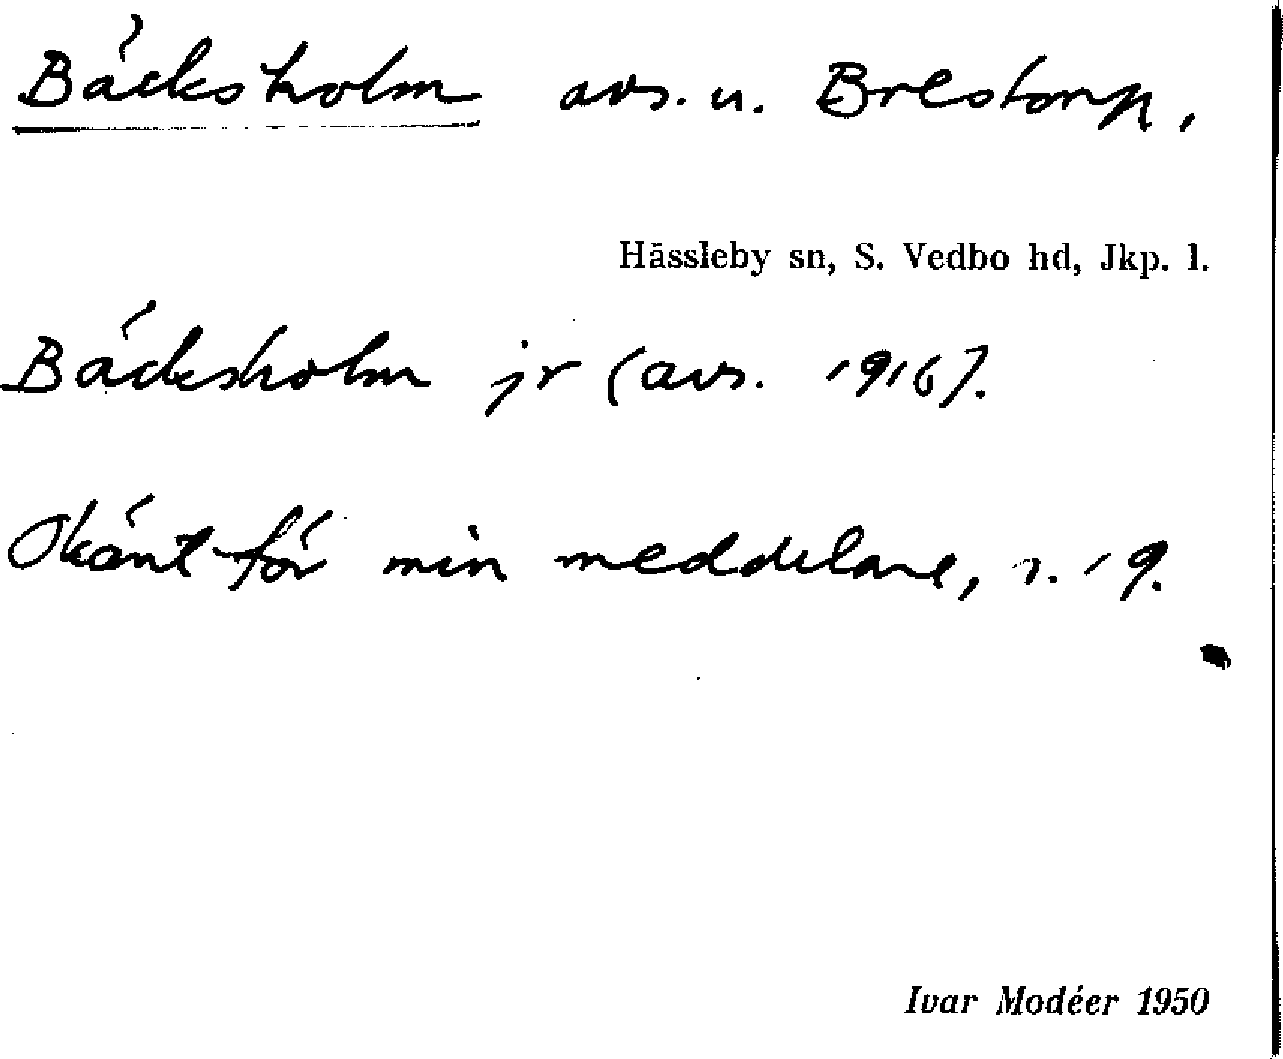 Bäcksholm avs. u. Brestorp,
Hässleby sn, S. Vedbo hd, Jkp. l.
Bäcksholm jr (avs. 1916).
Okänt för min meddelare, r. 19.
Ivar Modéer 1950